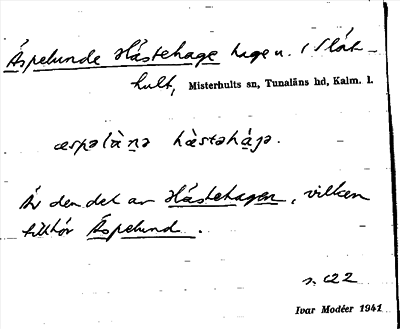 Äspelunde Hästehage hage u. i Slät-
hult, Misterhults sn, Tunaläns hd, Kalm. l.
æspəlùn̠ə hæ̀stəhа̠gə.
Är den del av Hästehagen, vilken
tillhör Äspelund.
s. 22
Ivar Modéer 1941